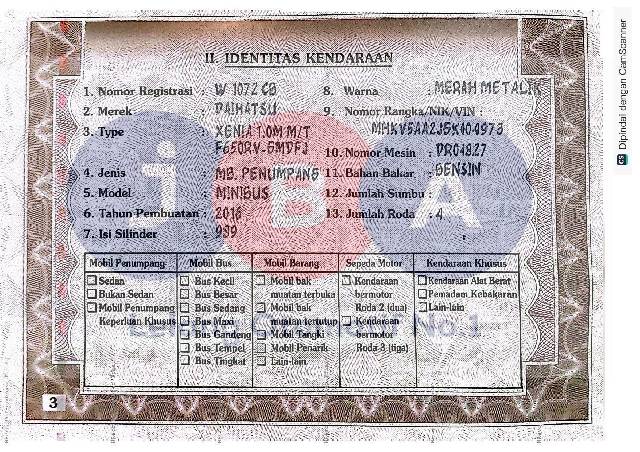 II. IDENTITAS KENDARAAN
1. Nomor Registrasi : W 1072 CB
2. Merek : DAIHATSU
3. Type : XENIA 1.0M M/T
F650RV-GMDFJ
4. Jenis : MB. PENUMPANG
5. Model : MINIBUS
6. Tahun Pembuatan :
7. Isi Silinder : 989
8. Warna : MERAH METALIK
9. Nomor Rangka/NIK/VIN :
10. Nomor Mesin :
11. Bahan Bakar : BENSIN
12. Jumlah Sumbu :
13. Jumlah Roda : 4
Mobil Penumpang
Sedan
Bukan Sedan
Mobil Penumpang
Keperluan Khusus
Mobil Bus
Bus Kecil
Bus Besar
Bus Sedang
Bus Maxi
Bus Gandeng
Bus Tempel
Bus Tingkat
Mobil Barang
Mobil bak
muatan terbuka
Mobil bak
muatan tertutup
Mobil Tangki
Mobil Penarik
Lain-lain
Sepeda Motor
Kendaraan
bermotor
Roda 2 (dua)
Kendaraan
bermotor
Roda 3 (tiga)
Kendaraan Khusus
Kendaraan Alat Berat
Pemadam Kebakaran
Lain-lain
iBA
No.1
3
CS Dipindai dengan CamScanner